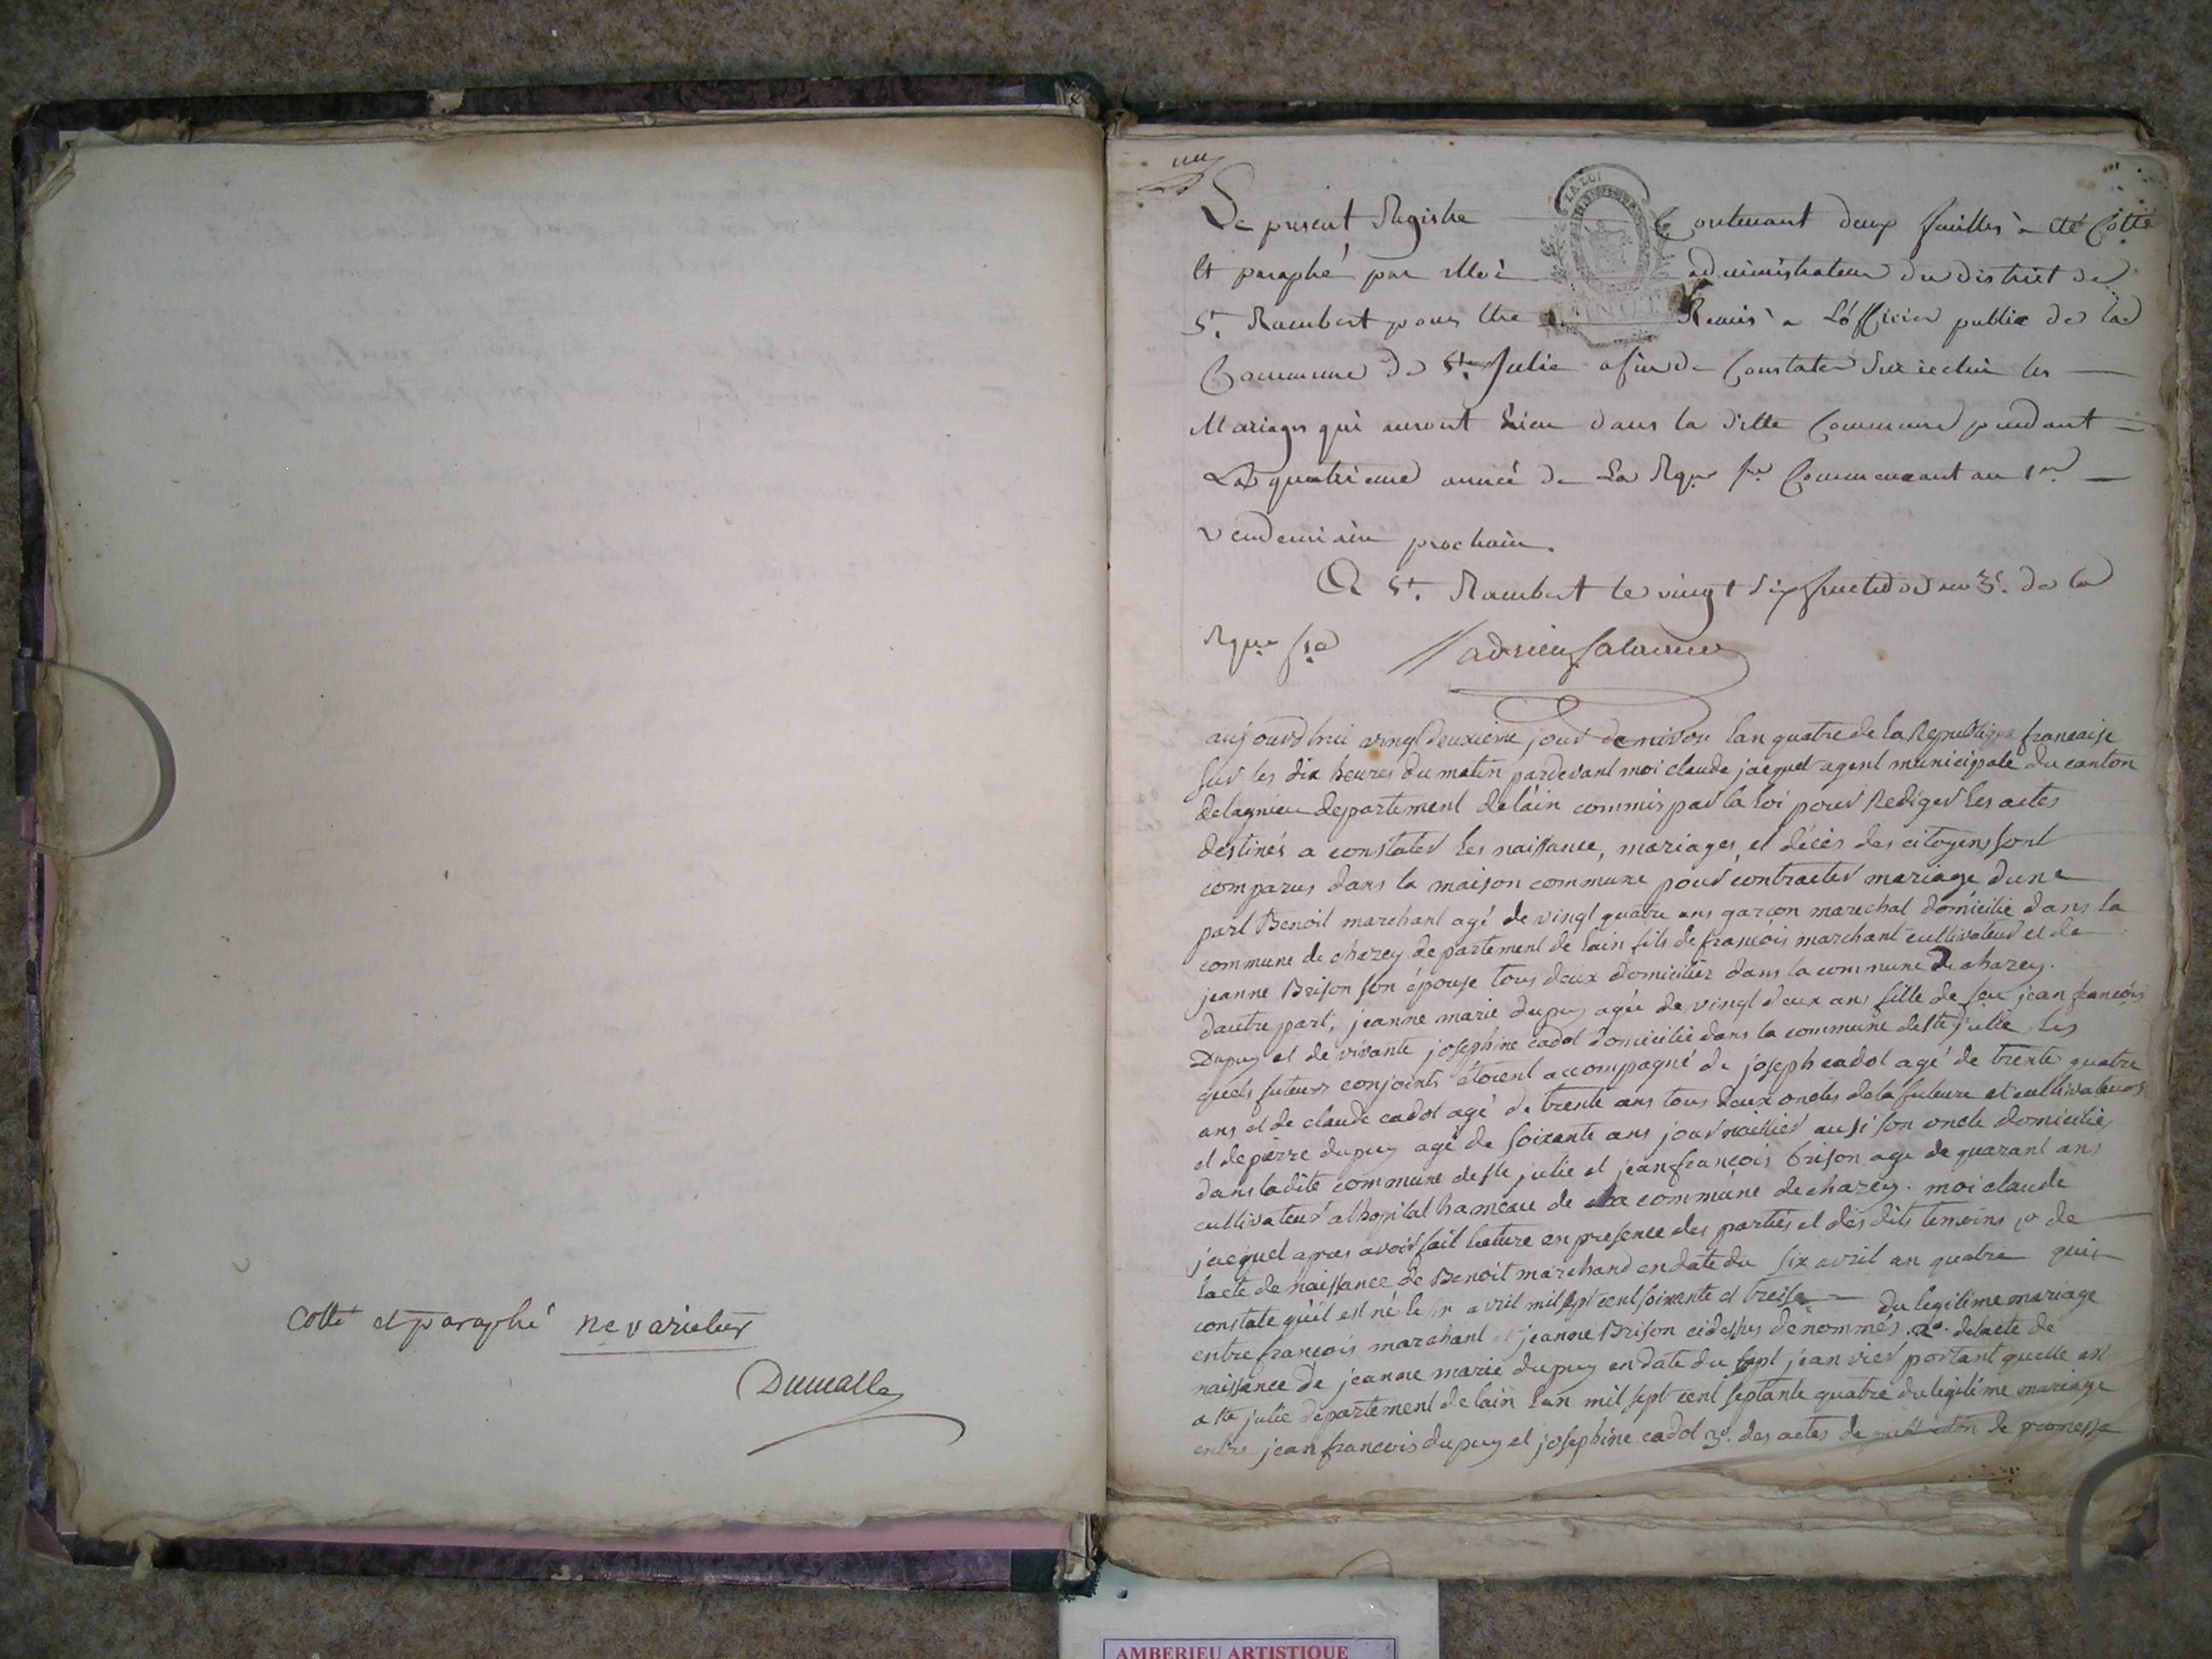 Cotté et paraphé ne varietur
Dumalle
un
Le present Registre Contenant deux feuilles a été Cotté
Et paraphé par Moi administrateur du district de
St. Rambert pour Etre Remis a L'officier public de la
Commune de Ste. Julie afin de Constater Sur icelui les
Mariages qui auront Lieu dans la ditte Commune pendant
La quatrieme année de La Rque fse Commencant au 1er
vendemiaire prochain.
A St. Rambert le vingt Six fructidor an 3e. de la
Rque fse
LA LOI
aujourdhui vingt deuxieme jour de nivose lan quatre de la Republique francaise
Sur les dix heures du matin pardevant moi claude jacquet agent municipale du canton
delagnieu departement delain commis par la loi pour Rediger Les actes
destinés a constater Les naissance, mariages, et décès des citoyens sont
comparus dans la maison commune pour contracter mariage dune
part Benoit marchant agé de vingt quatre ans garçon marechal domicilié dans la
commune de chazey departement de lain fils de francois marchant cultivateur et de
jeanne Brison son épouse tous deux domiciliez dans la commune de chazey.
dautre part, jeanne marie dupuy agée de vingt deux ans fille de feu jean francois
Dupuy et de vivante josephine cadot domicilié dans la commune de ste julie Les
quels futurs conjoints étoient accompagné de joseph cadot agé de trente quatre
ans et de claude cadot agé de trente ans tous deux oncles de la future et cultivateurs
et de pierre dupuy agé de soixante ans journaillier ausi son oncle domicilié
dans ladite commune de ste julie et jean françois brison agé de quarant ans
cultivateur a lhopital hameau de la commune de chazey. moi claude
jacquet apres avoir fait lecture en presence des parties et des dits temoins 1o de
lacte de naissance de Benoit marchand en date du six avril an quatre qui
constate qu'il est né le six avril mil sept cent soixante et treise du legitime mariage
entre francois marchant et jeanne Brison cidessus denommés. 2o. de lacte de
naissance de jeanne marie dupuy en date du sept jeanvier portant quelle est
a ste julie departement de lain Lan mil sept cent septante quatre du legitime mariage
entre jean francois dupuy et josephine cadot 3o. des actes de de promesse
AMBERIEU ARTISTIQUE